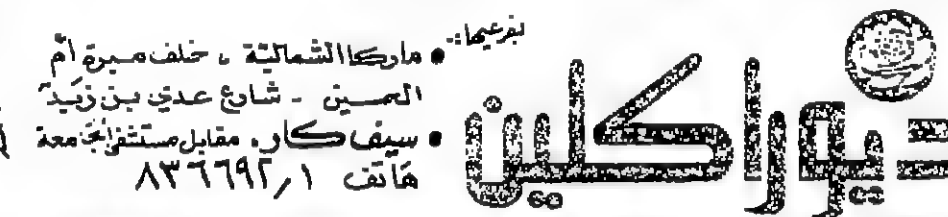 ديوراكلين
بفرعيها:-
• ماركا الشمالية ، خلف مبرة أم
الحسين - شارع عدي بن زيد
• سيف كار، مقابل مستشفى الجامعة
هَاتف ٨٣٦٦٩٢/١